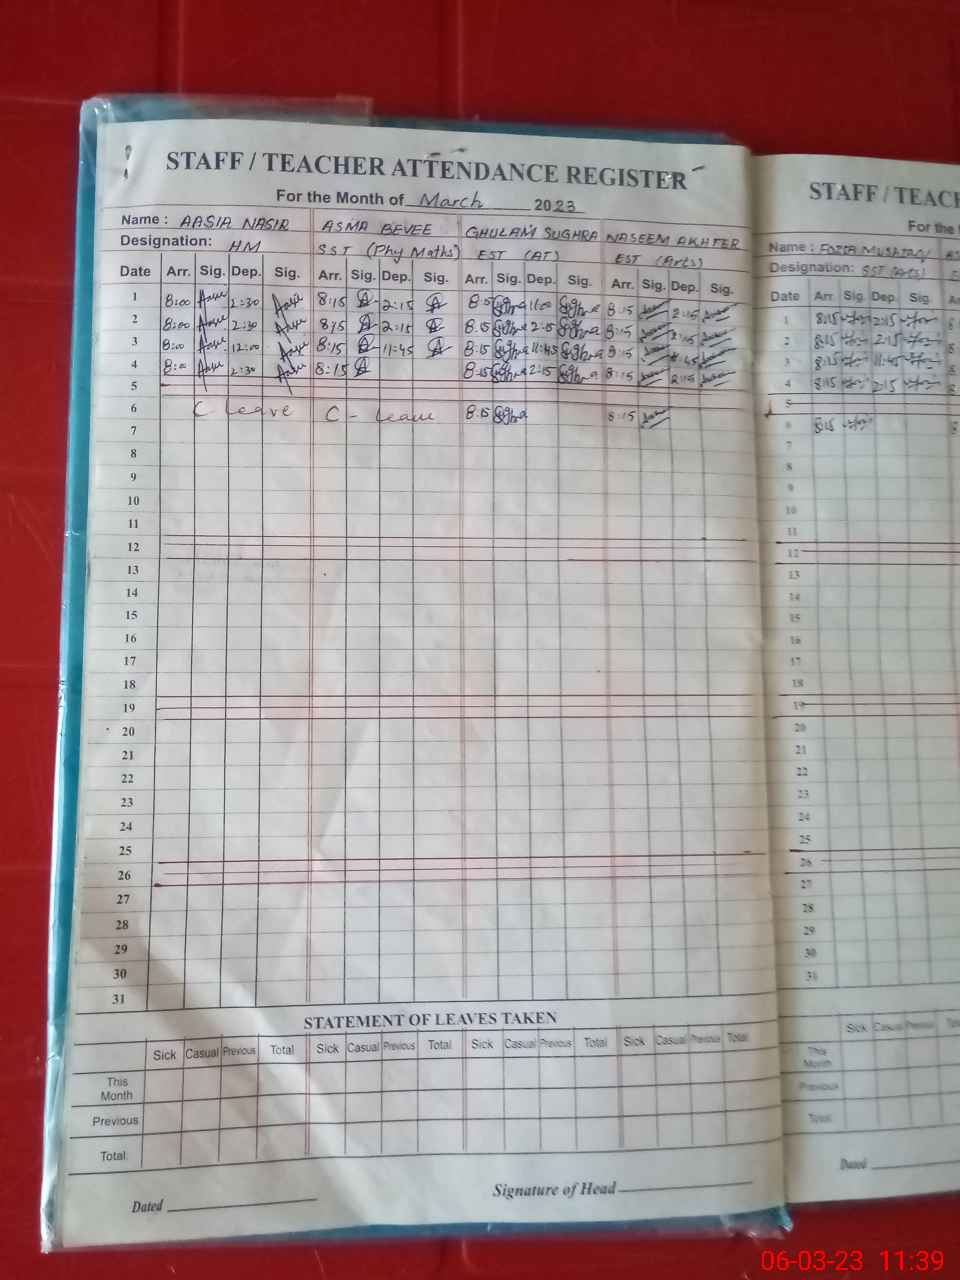 STAFF / TEACHER ATTENDANCE REGISTER
For the Month of March 2023
Name : AASIA NASIR ASMA BEVEE GHULAM SUGHRA NASEEM AKHTER
Designation: HM SST (Phy Maths) EST (AT) EST (Arts)
Date Arr. Sig. Dep. Sig. Arr. Sig. Dep. Sig. Arr. Sig. Dep. Sig. Arr. Sig. Dep. Sig.
1 8:00 2:30 8:15 2:15 8:15 11:00 8:15 2:15
2 8:00 2:30 8:15 2:15 8:15 2:15 8:15 2:15
3 8:00 12:00 8:15 11:45 8:15 11:45 8:15 11:45
4 8:00 2:30 8:15 8:15 2:15 8:15 2:15
5
6 C Leave C - Leave 8:15 8:15
7
8
9
10
11
12
13
14
15
16
17
18
19
20
21
22
23
24
25
26
27
28
29
30
31
STATEMENT OF LEAVES TAKEN
Sick Casual Previous Total Sick Casual Previous Total Sick Casual Previous Total Sick Casual Previous Total
This
Month
Previous
Total
Dated
Signature of Head
STAFF / TEACH
For the
Name :
Designation: SST (Arts)
Date Arr. Sig. Dep. Sig.
1 8:15 2:15
2 8:15 2:15
3 8:15 11:45
4 8:15 2:15
5
6 8:15
7
8
9
10
11
12
13
14
15
16
17
18
19
20
21
22
23
24
25
26
27
28
29
30
31
Sick Casual Previous Total
This
Month
Previous
Total
Dated
06-03-23 11:39